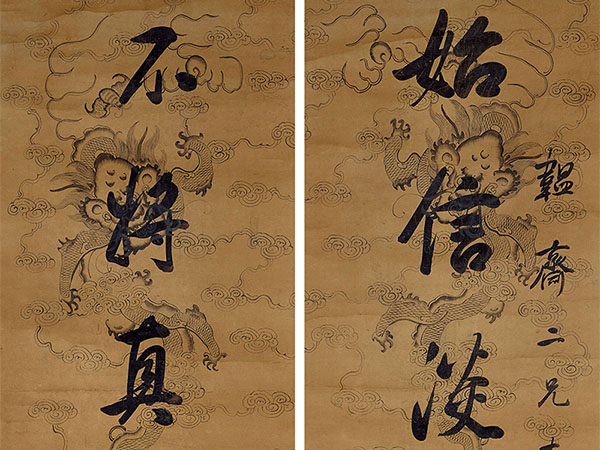 韞齋二兄
始信淡
不将真